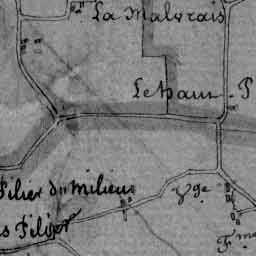 La Malvrais
Le haut P
Pilier du milieu
Vge
s Pilier
Fme